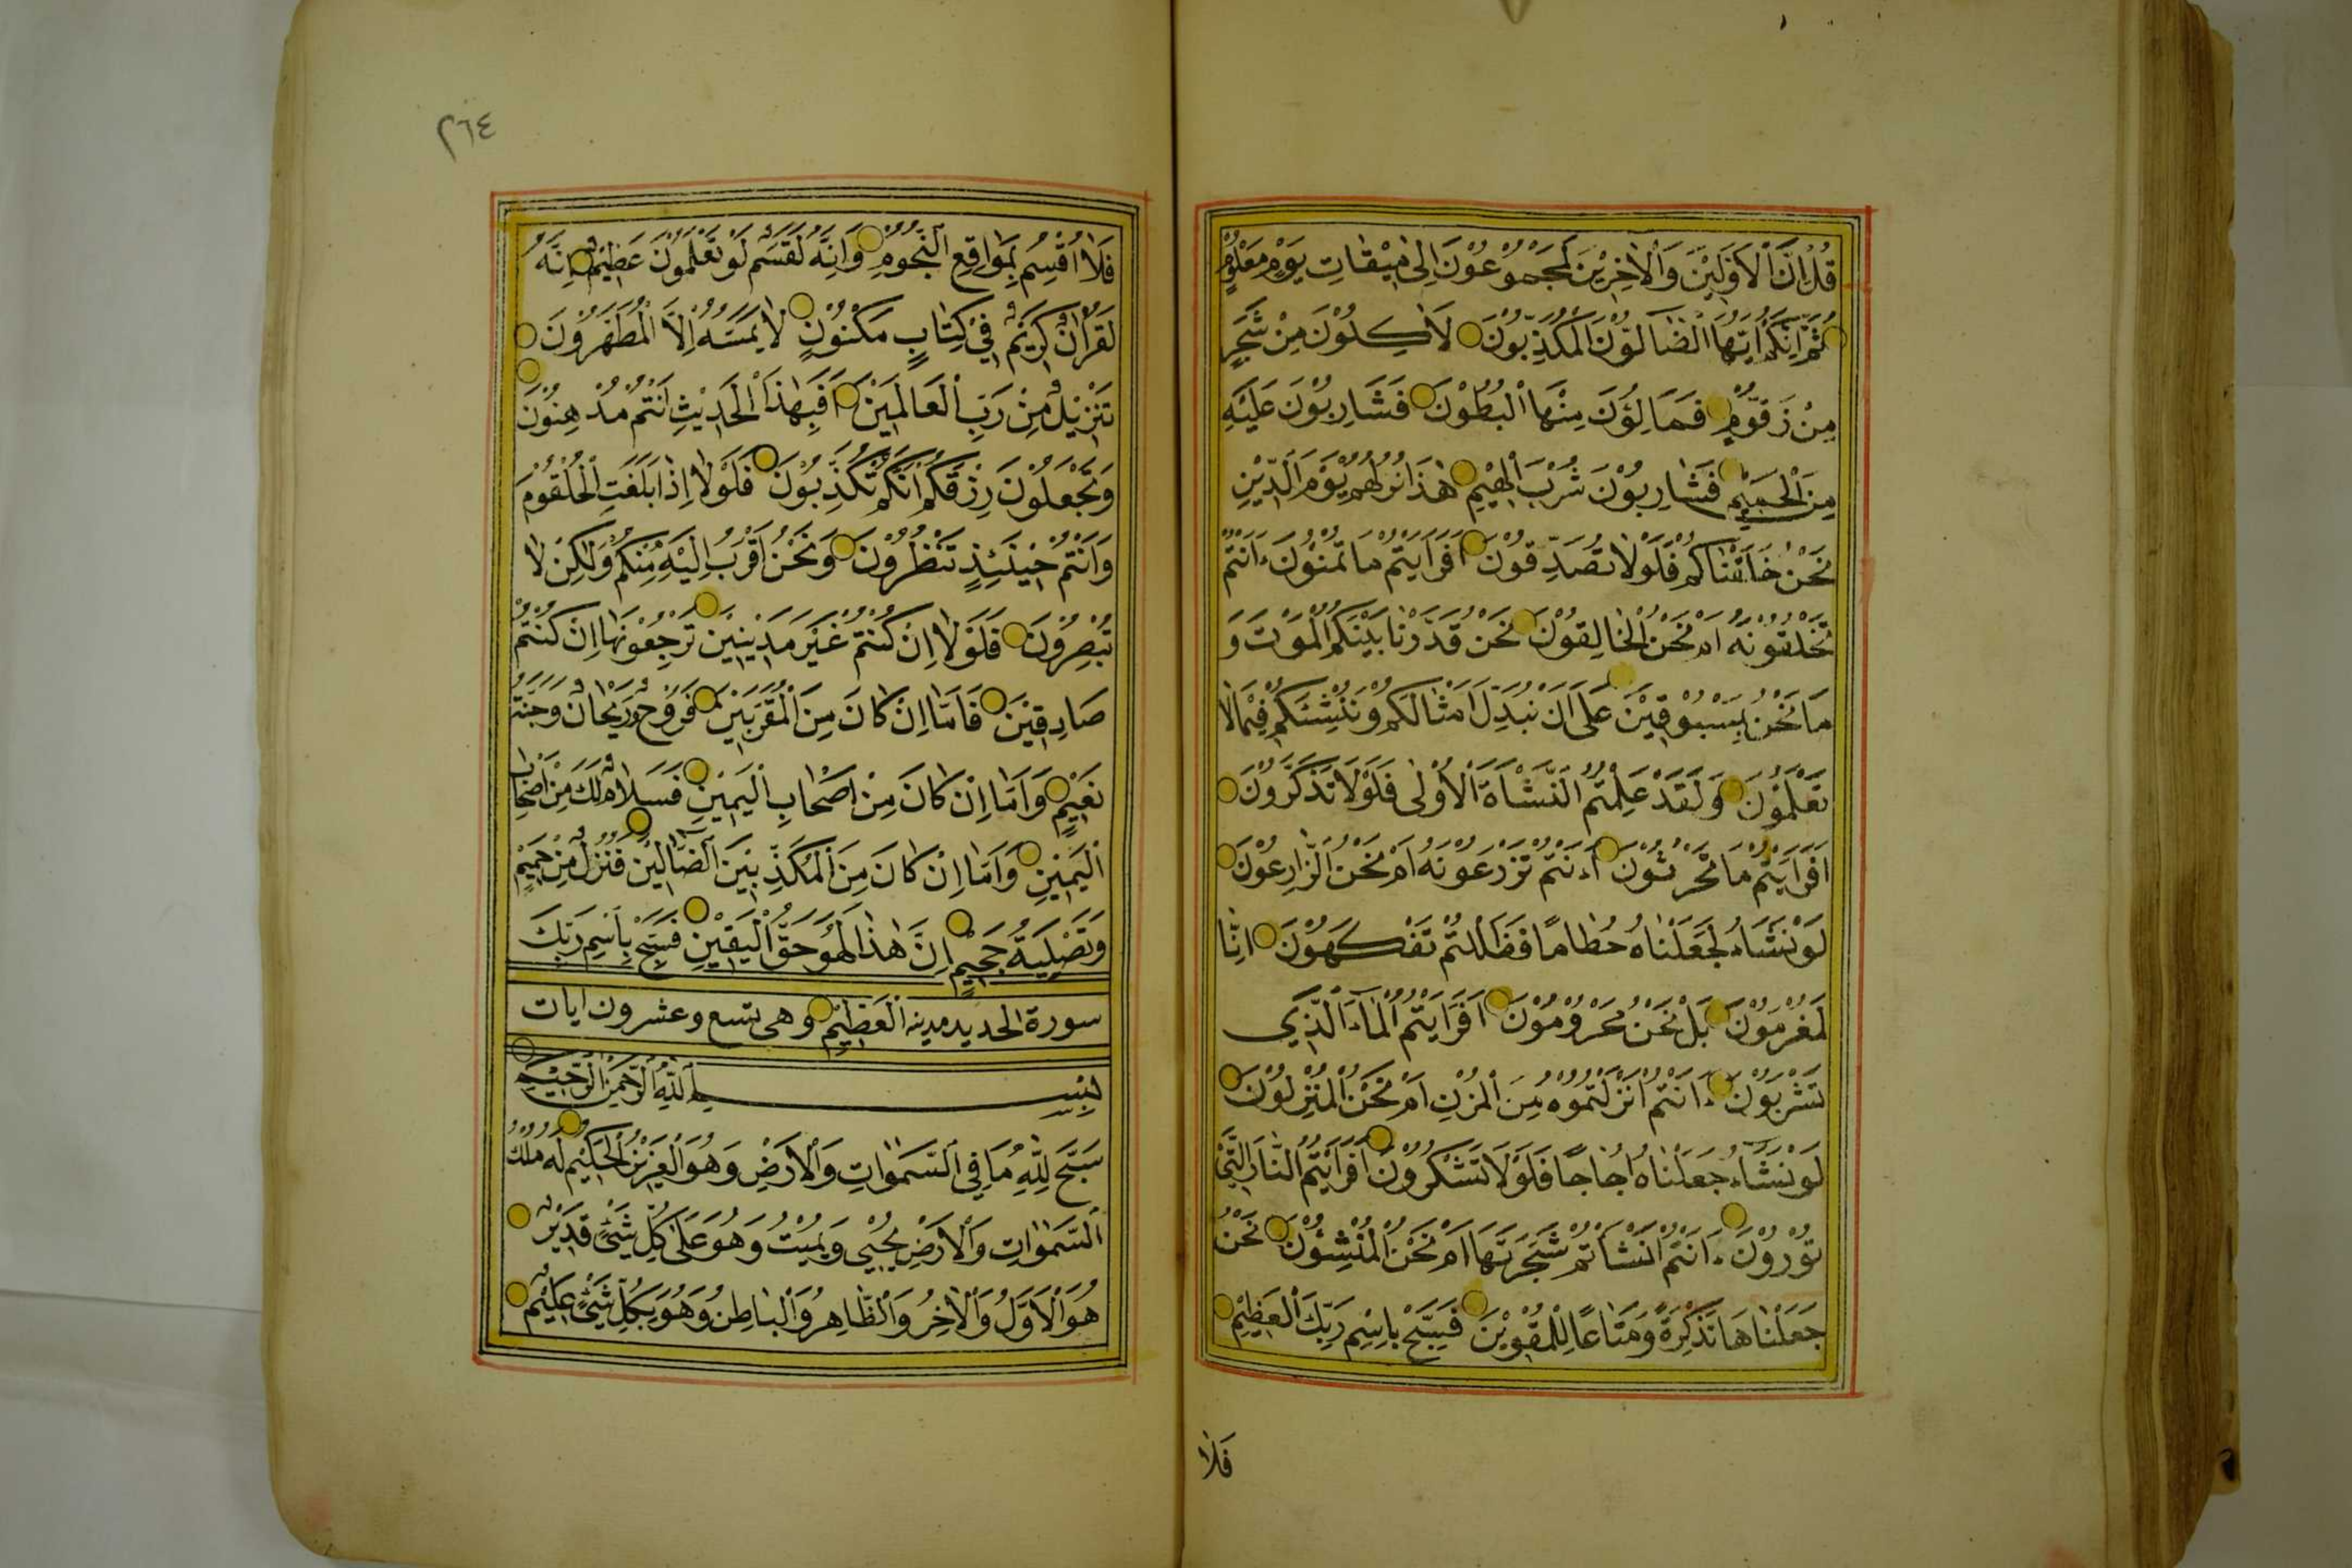 قُلْ اِنَّ الْاَوَّلِيْنَ وَالْاٰخِرِيْنَ لَمَجْمُوْعُوْنَ اِلٰى مِيْقَاتِ يَوْمٍ مَعْلُوْمٍ
ثُمَّ اِنَّكُمْ اَيُّهَا الضَّالُّوْنَ الْمُكَذِّبُوْنَ لَاٰكِلُوْنَ مِنْ شَجَرٍ
مِنْ زَقُّوْمٍ فَمَالِؤُنَ مِنْهَا الْبُطُوْنَ فَشَارِبُوْنَ عَلَيْهِ
مِنَ الْحَمِيْمِ فَشَارِبُوْنَ شُرْبَ الْهِيْمِ هٰذَا نُزُلُهُمْ يَوْمَ الدِّيْنِ
نَحْنُ خَلَقْنَاكُمْ فَلَوْلَا تُصَدِّقُوْنَ اَفَرَاَيْتُمْ مَا تُمْنُوْنَ ءَاَنْتُمْ
تَخْلُقُوْنَهُ اَمْ نَحْنُ الْخَالِقُوْنَ نَحْنُ قَدَّرْنَا بَيْنَكُمُ الْمَوْتَ وَ
مَا نَحْنُ بِمَسْبُوْقِيْنَ عَلٰى اَنْ نُبَدِّلَ اَمْثَالَكُمْ وَنُنْشِئَكُمْ فِيْمَا لَا
تَعْلَمُوْنَ وَلَقَدْ عَلِمْتُمُ النَّشْاَةَ الْاُوْلٰى فَلَوْلَا تَذَكَّرُوْنَ
اَفَرَاَيْتُمْ مَا تَحْرُثُوْنَ ءَاَنْتُمْ تَزْرَعُوْنَهُ اَمْ نَحْنُ الزَّارِعُوْنَ
لَوْ نَشَاءُ لَجَعَلْنَاهُ حُطَامًا فَظَلْتُمْ تَفَكَّهُوْنَ اِنَّا
لَمُغْرَمُوْنَ بَلْ نَحْنُ مَحْرُوْمُوْنَ اَفَرَاَيْتُمُ الْمَاءَ الَّذِي
تَشْرَبُوْنَ ءَاَنْتُمْ اَنْزَلْتُمُوْهُ مِنَ الْمُزْنِ اَمْ نَحْنُ الْمُنْزِلُوْنَ
لَوْ نَشَاءُ جَعَلْنَاهُ اُجَاجًا فَلَوْلَا تَشْكُرُوْنَ اَفَرَاَيْتُمُ النَّارَ الَّتِيْ
تُوْرُوْنَ ءَاَنْتُمْ اَنْشَاْتُمْ شَجَرَتَهَا اَمْ نَحْنُ الْمُنْشِؤُنَ نَحْنُ
جَعَلْنَاهَا تَذْكِرَةً وَمَتَاعًا لِلْمُقْوِيْنَ فَسَبِّحْ بِاسْمِ رَبِّكَ الْعَظِيْمِ
فَلَا
٢٦٤
فَلَا اُقْسِمُ بِمَوَاقِعِ النُّجُوْمِ وَاِنَّهُ لَقَسَمٌ لَوْ تَعْلَمُوْنَ عَظِيْمٌ اِنَّهُ
لَقُرْاٰنٌ كَرِيْمٌ فِيْ كِتَابٍ مَكْنُوْنٍ لَا يَمَسُّهُ اِلَّا الْمُطَهَّرُوْنَ
تَنْزِيْلٌ مِنْ رَبِّ الْعَالَمِيْنَ اَفَبِهٰذَا الْحَدِيْثِ اَنْتُمْ مُدْهِنُوْنَ
وَتَجْعَلُوْنَ رِزْقَكُمْ اَنَّكُمْ تُكَذِّبُوْنَ فَلَوْلَا اِذَا بَلَغَتِ الْحُلْقُوْمَ
وَاَنْتُمْ حِيْنَئِذٍ تَنْظُرُوْنَ وَنَحْنُ اَقْرَبُ اِلَيْهِ مِنْكُمْ وَلٰكِنْ لَا
تُبْصِرُوْنَ فَلَوْلَا اِنْ كُنْتُمْ غَيْرَ مَدِيْنِيْنَ تَرْجِعُوْنَهَا اِنْ كُنْتُمْ
صَادِقِيْنَ فَاَمَّا اِنْ كَانَ مِنَ الْمُقَرَّبِيْنَ فَرَوْحٌ وَرَيْحَانٌ وَجَنَّةُ
نَعِيْمٍ وَاَمَّا اِنْ كَانَ مِنْ اَصْحَابِ الْيَمِيْنِ فَسَلَامٌ لَكَ مِنْ اَصْحَابِ
الْيَمِيْنِ وَاَمَّا اِنْ كَانَ مِنَ الْمُكَذِّبِيْنَ الضَّالِّيْنَ فَنُزُلٌ مِنْ حَمِيْمٍ
وَتَصْلِيَةُ جَحِيْمٍ اِنَّ هٰذَا لَهُوَ حَقُّ الْيَقِيْنِ فَسَبِّحْ بِاسْمِ رَبِّكَ
سورة الحديد مدينه الْعَظِيْمِ وهى تسع وعشرون ايات
بِسْمِ اللّٰهِ الرَّحْمٰنِ الرَّحِيْمِ
سَبَّحَ لِلّٰهِ مَا فِي السَّمٰوَاتِ وَالْاَرْضِ وَهُوَ الْعَزِيْزُ الْحَكِيْمُ لَهُ مُلْكُ
السَّمٰوَاتِ وَالْاَرْضِ يُحْيِي وَيُمِيْتُ وَهُوَ عَلٰى كُلِّ شَيْءٍ قَدِيْرٌ
هُوَ الْاَوَّلُ وَالْاٰخِرُ وَالظَّاهِرُ وَالْبَاطِنُ وَهُوَ بِكُلِّ شَيْءٍ عَلِيْمٌ